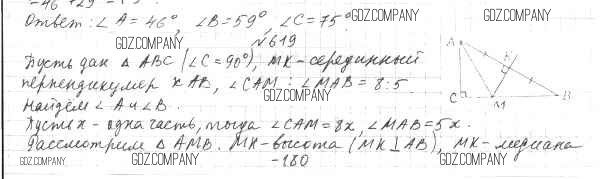 Ответ: ∠A = 46°, ∠B = 59°, ∠C = 75°.
GDZ.COMPANY
GDZ.COMPANY
GDZ.COMPANY
№619
Пусть дан △ ABC (∠C = 90°), MK - серединный
перпендикуляр к AB, ∠CAM : ∠MAB = 8:5.
GDZ.COMPANY
Найдём ∠A и ∠B.
Пусть x - одна часть, тогда ∠CAM = 8x, ∠MAB = 5x.
Рассмотрим △ AMB. MK - высота (MK ⊥ AB), MK - медиана
A
K
C
M
B
GDZ.COMPANY
GDZ.COMPANY
GDZ.COMPANY
-180